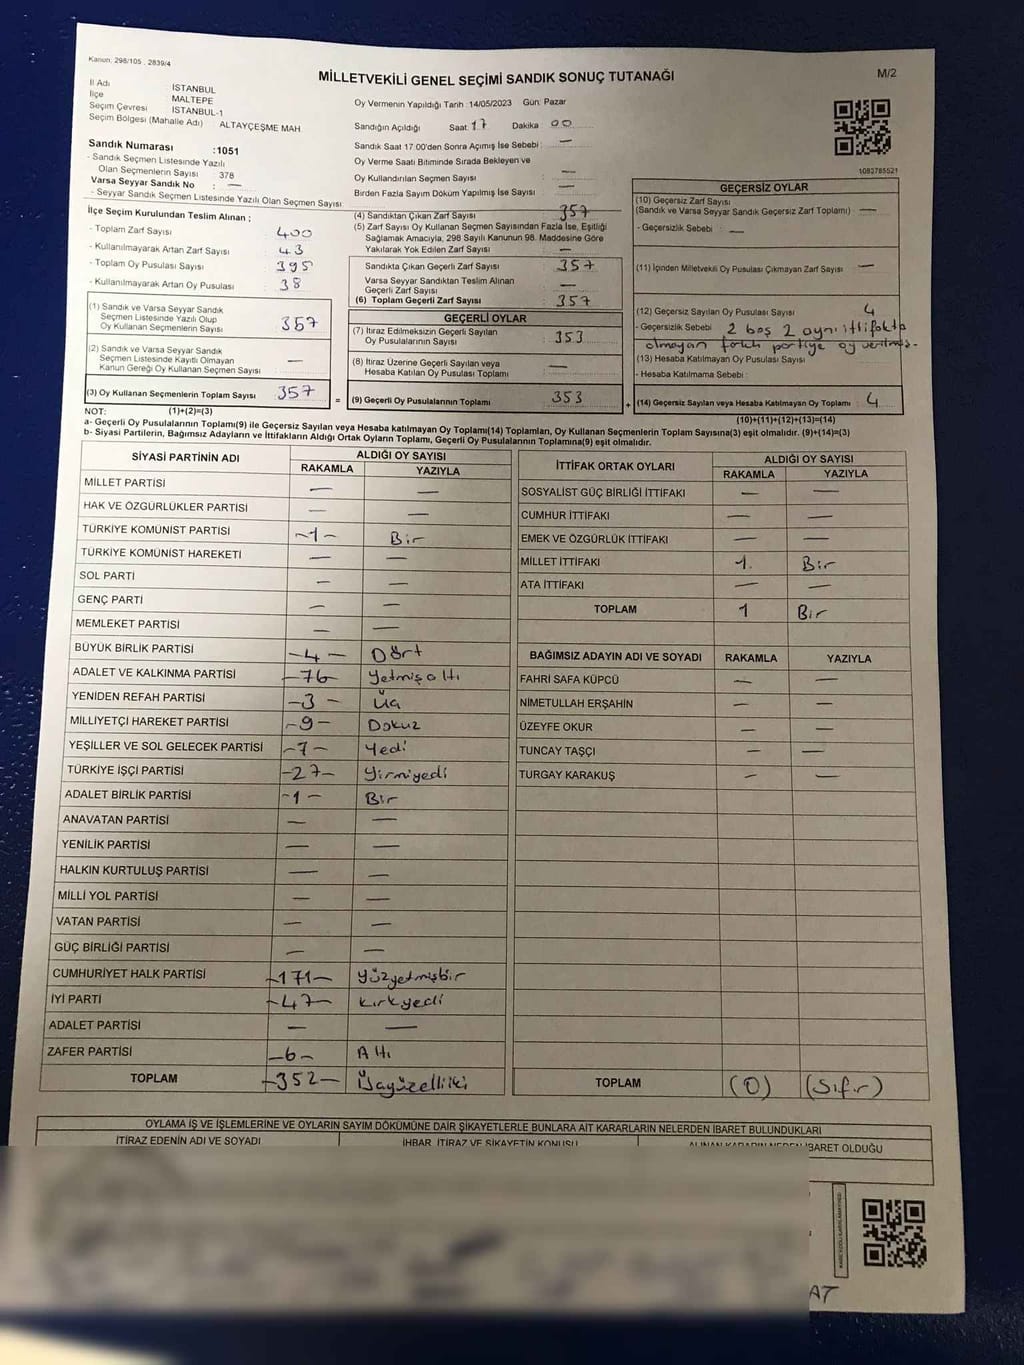 Kanun: 298/105 . 2839/4
MİLLETVEKİLİ GENEL SEÇİMİ SANDIK SONUÇ TUTANAĞI
M/2
İl Adı İSTANBUL
İlçe MALTEPE
Seçim Çevresi İSTANBUL-1
Seçim Bölgesi (Mahalle Adı) ALTAYÇEŞME MAH.
Sandık Numarası :1051
- Sandık Seçmen Listesinde Yazılı
Olan Seçmenlerin Sayısı 378
Varsa Seyyar Sandık No : —
- Seyyar Sandık Seçmen Listesinde Yazılı Olan Seçmen Sayısı:
Oy Vermenin Yapıldığı Tarih :14/05/2023 Gün: Pazar
Sandığın Açıldığı Saat 17 Dakika 00
Sandık Saat 17:00'den Sonra Açımış İse Sebebi : —
Oy Verme Saati Bitiminde Sırada Bekleyen ve
Oy Kullandırılan Seçmen Sayısı : —
Birden Fazla Sayım Döküm Yapılmış İse Sayısı : —
1082785521
İlçe Seçim Kurulundan Teslim Alınan ;
- Toplam Zarf Sayısı : 400
- Kullanılmayarak Artan Zarf Sayısı : 43
- Toplam Oy Pusulası Sayısı : 395
- Kullanılmayarak Artan Oy Pusulası : 38
(1) Sandık ve Varsa Seyyar Sandık
Seçmen Listesinde Yazılı Olup
Oy Kullanan Seçmenlerin Sayısı : 357
(2) Sandık ve Varsa Seyyar Sandık
Seçmen Listesinde Kayıtlı Olmayan
Kanun Gereği Oy Kullanan Seçmen Sayısı : —
(3) Oy Kullanan Seçmenlerin Toplam Sayısı : 357
(4) Sandıktan Çıkan Zarf Sayısı : 357
(5) Zarf Sayısı Oy Kullanan Seçmen Sayısından Fazla İse, Eşitliği
Sağlamak Amacıyla, 298 Sayılı Kanunun 98. Maddesine Göre
Yakılarak Yok Edilen Zarf Sayısı : —
Sandıkta Çıkan Geçerli Zarf Sayısı : 357
Varsa Seyyar Sandıktan Teslim Alınan
Geçerli Zarf Sayısı : —
(6) Toplam Geçerli Zarf Sayısı : 357
GEÇERLİ OYLAR
(7) İtiraz Edilmeksizin Geçerli Sayılan
Oy Pusulalarının Sayısı : 353
(8) İtiraz Üzerine Geçerli Sayılan veya
Hesaba Katılan Oy Pusulası Toplamı : —
= (9) Geçerli Oy Pusulalarının Toplamı : 353
GEÇERSİZ OYLAR
(10) Geçersiz Zarf Sayısı
(Sandık ve Varsa Seyyar Sandık Geçersiz Zarf Toplamı) : —
- Geçersizlik Sebebi : —
(11) İçinden Milletvekili Oy Pusulası Çıkmayan Zarf Sayısı : —
(12) Geçersiz Sayılan Oy Pusulası Sayısı : 4
- Geçersizlik Sebebi : 2 boş 2 aynı ittifakta
olmayan farklı partiye oy verilmiş.
(13) Hesaba Katılmayan Oy Pusulası Sayısı :
- Hesaba Katılmama Sebebi :
+ (14) Geçersiz Sayılan veya Hesaba Katılmayan Oy Toplamı : 4
NOT: (1)+(2)=(3)
(10)+(11)+(12)+(13)=(14)
a- Geçerli Oy Pusulalarının Toplamı(9) ile Geçersiz Sayılan veya Hesaba katılmayan Oy Toplamı(14) Toplamları, Oy Kullanan Seçmenlerin Toplam Sayısına(3) eşit olmalıdır. (9)+(14)=(3)
b- Siyasi Partilerin, Bağımsız Adayların ve İttifakların Aldığı Ortak Oyların Toplamı, Geçerli Oy Pusulalarının Toplamına(9) eşit olmalıdır.
SİYASİ PARTİNİN ADI ALDIĞI OY SAYISI
RAKAMLA YAZIYLA
MİLLET PARTİSİ — —
HAK VE ÖZGÜRLÜKLER PARTİSİ — —
TÜRKİYE KOMÜNİST PARTİSİ -1- Bir
TÜRKİYE KOMÜNİST HAREKETİ — —
SOL PARTİ — —
GENÇ PARTİ — —
MEMLEKET PARTİSİ — —
BÜYÜK BİRLİK PARTİSİ -4- Dört
ADALET VE KALKINMA PARTİSİ -76- Yetmişaltı
YENİDEN REFAH PARTİSİ -3- Üç
MİLLİYETÇİ HAREKET PARTİSİ -9- Dokuz
YEŞİLLER VE SOL GELECEK PARTİSİ -7- Yedi
TÜRKİYE İŞÇİ PARTİSİ -27- Yirmiyedi
ADALET BİRLİK PARTİSİ -1- Bir
ANAVATAN PARTİSİ — —
YENİLİK PARTİSİ — —
HALKIN KURTULUŞ PARTİSİ — —
MİLLİ YOL PARTİSİ — —
VATAN PARTİSİ — —
GÜÇ BİRLİĞİ PARTİSİ — —
CUMHURİYET HALK PARTİSİ -171- Yüzyetmişbir
İYİ PARTİ -47- kırkyedi
ADALET PARTİSİ — —
ZAFER PARTİSİ -6- Altı
TOPLAM -352- Üçyüzelliiki
İTTİFAK ORTAK OYLARI ALDIĞI OY SAYISI
RAKAMLA YAZIYLA
SOSYALİST GÜÇ BİRLİĞİ İTTİFAKI — —
CUMHUR İTTİFAKI — —
EMEK VE ÖZGÜRLÜK İTTİFAKI — —
MİLLET İTTİFAKI 1. Bir
ATA İTTİFAKI — —
TOPLAM 1 Bir
BAĞIMSIZ ADAYIN ADI VE SOYADI RAKAMLA YAZIYLA
FAHRİ SAFA KÜPCÜ — —
NİMETULLAH ERŞAHİN — —
ÜZEYFE OKUR — —
TUNCAY TAŞÇI — —
TURGAY KARAKUŞ — —
TOPLAM (0) (Sıfır)
OYLAMA İŞ VE İŞLEMLERİNE VE OYLARIN SAYIM DÖKÜMÜNE DAİR ŞİKAYETLERLE BUNLARA AİT KARARLARIN NELERDEN İBARET BULUNDUKLARI
İTİRAZ EDENİN ADI VE SOYADI İHBAR, İTİRAZ VE ŞİKAYETİN KONUSU ALINAN KARARIN NEDEN İBARET OLDUĞU